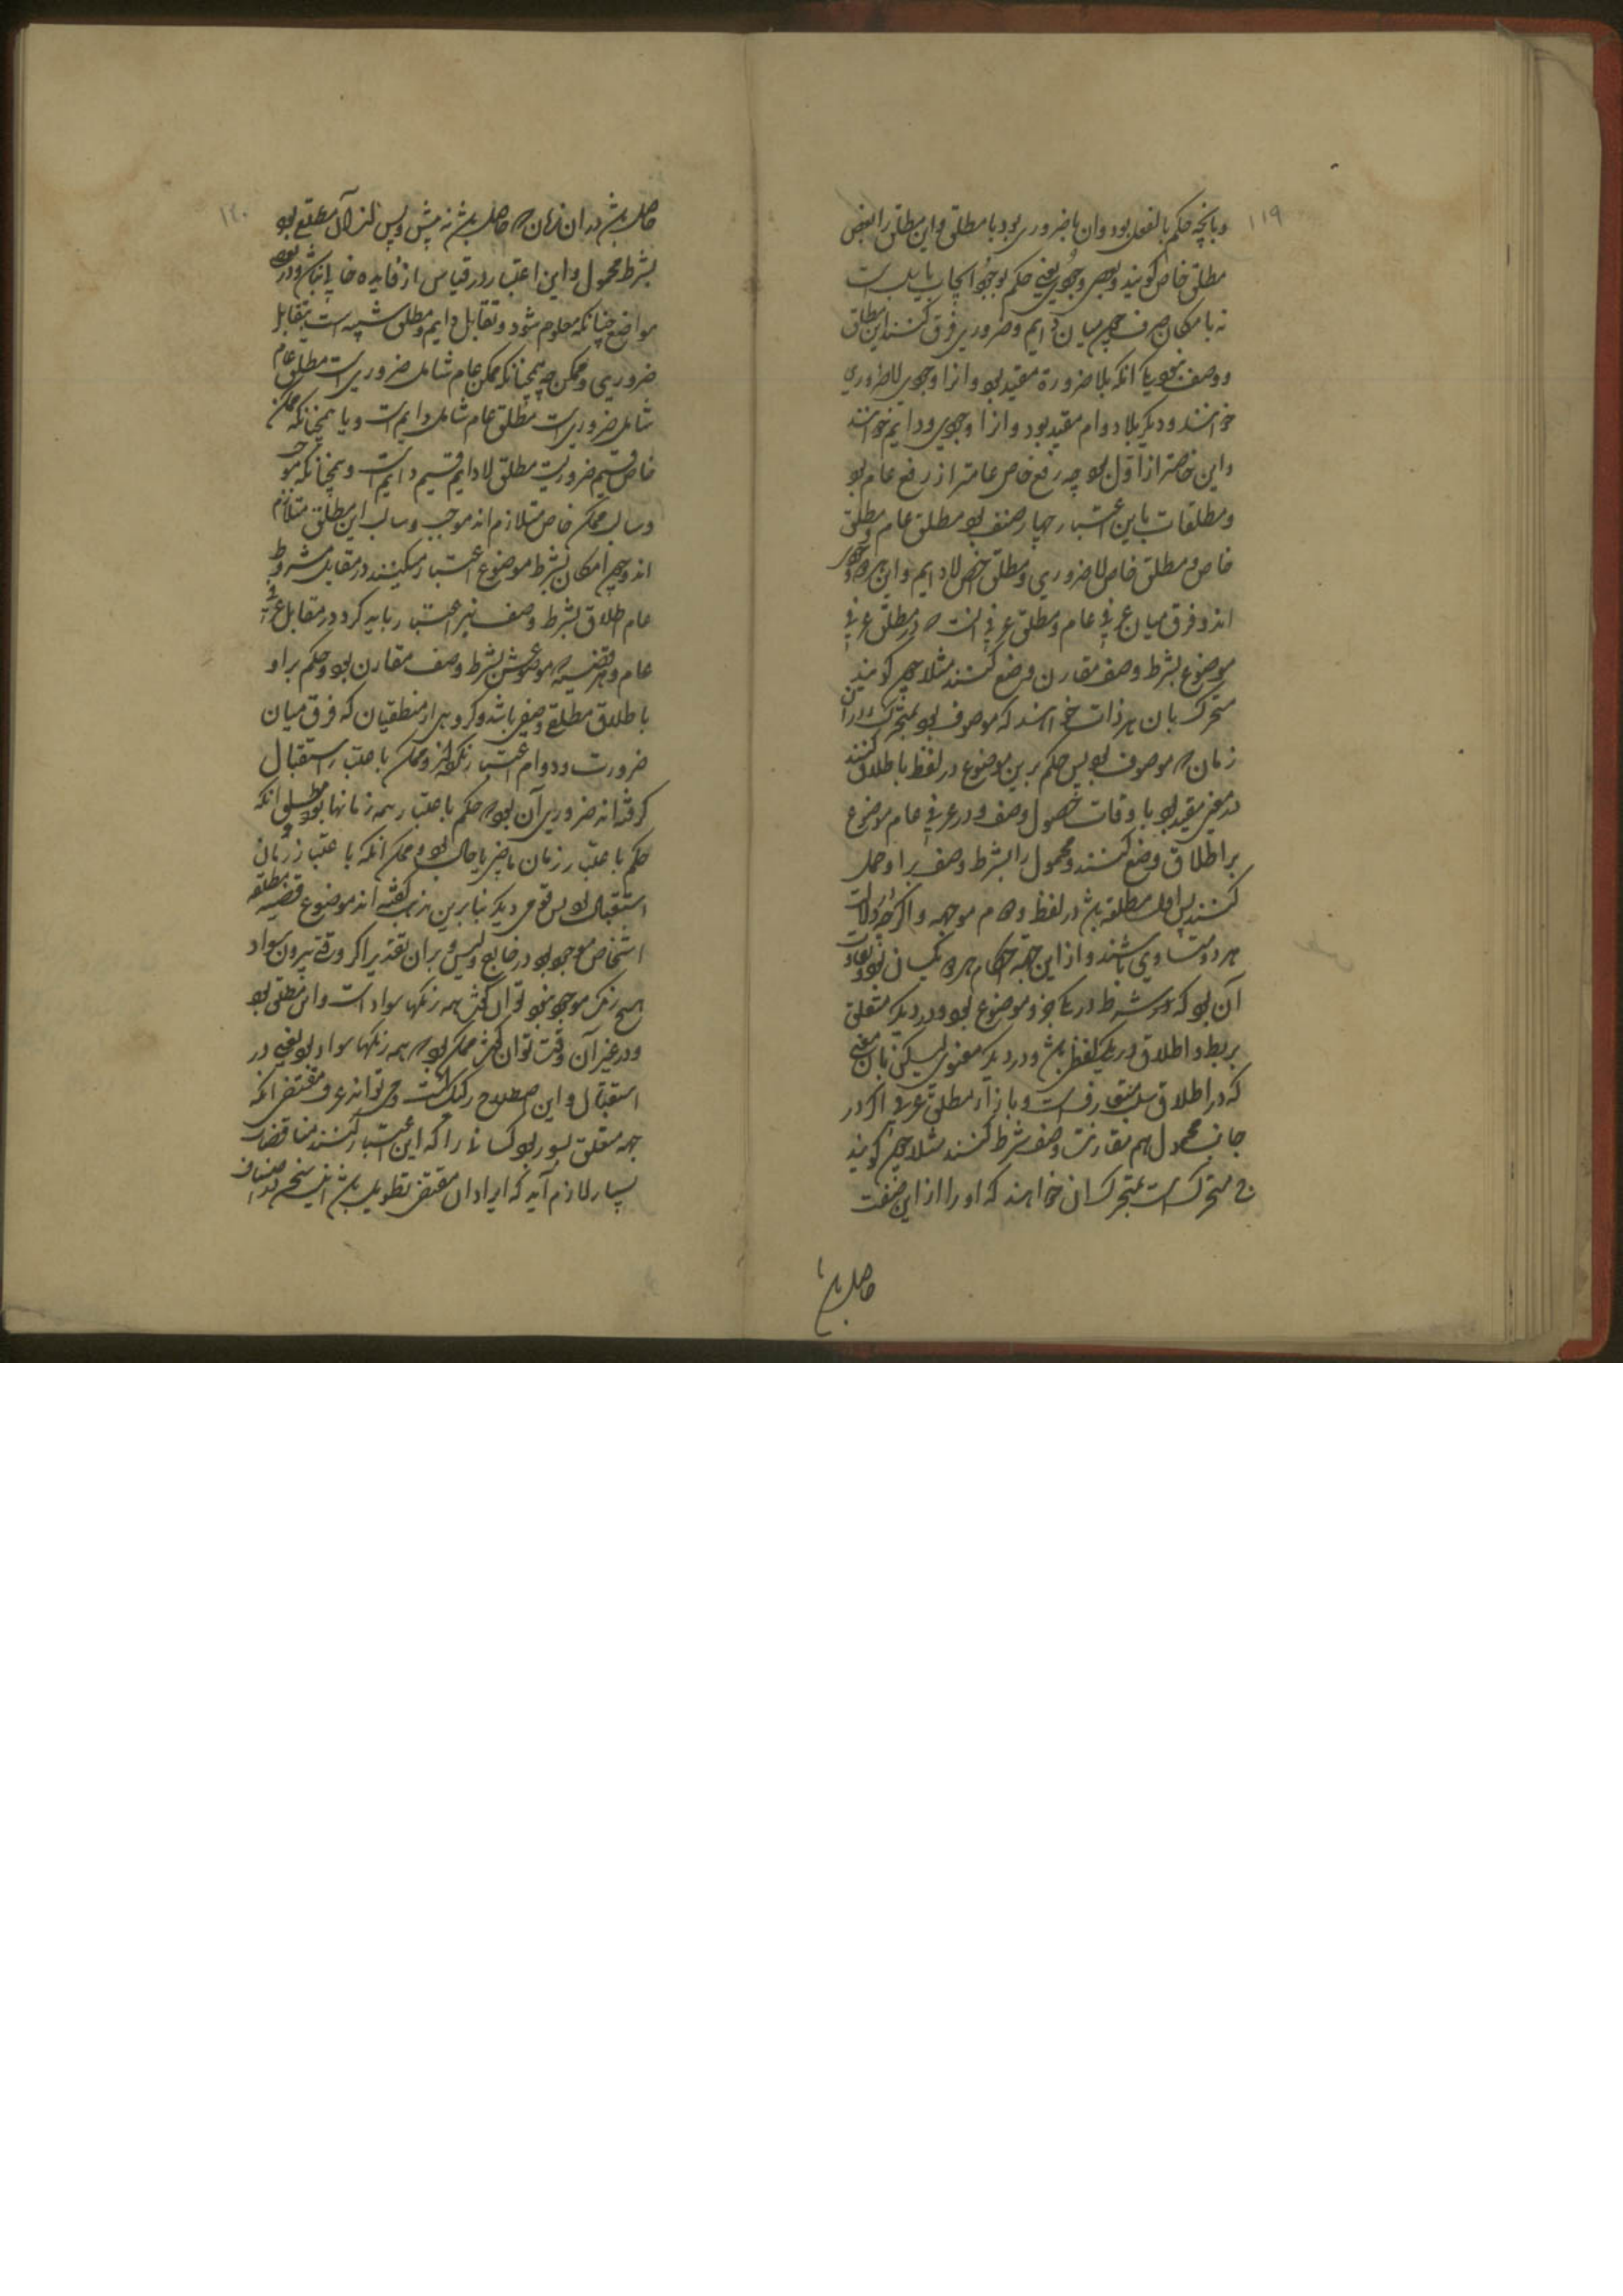 ۱۱۹
وبانچه حکم بالفعل بود وان یا ضروری بود یا مطلق واین مطلق را بعض
مطلق خاص کویند وبعضی وجودی یعنی حکم بوجود ایجاب یا سلب است
نه بامکان صرف وچون میان دایم وضروری فرق کنند این مطلق
دو صنف بود یکی انکه بلا ضرورة مقید بود وانرا وجودی لاضروری
خوانند ودیکر بلا دوام مقید بود وانرا وجودی لادایم خوانند
واین خاصتر از اول بود چه رفع خاص عامتر از رفع عام بود
ومطلقات باین اعتبار چهار صنف بود مطلق عام ومطلق
خاص ومطلق خاص لاضروری ومطلق خاص لادایم واین هر دو وجودی
اند وفرق میان عرفی عام ومطلق عرفی انست که در مطلق عرفی
موضوع بشرط وصف مقارن وضع کنند مثلا چون کویند
متحرک بان هر ذات خواهند که موصوف بود بمتحرک در ان
زمان که موصوف بود پس حکم برین موضوع در لفظ باطلاق کنند
در معنی مقید بود باوقات حصول وصف ودر عرفی عام موضوع
بر اطلاق وضع کنند ومحمول را بشرط وصف بر او حمل
کنند پس اول مطلقه باشد در لفظ ودوم موجهه واکر چه در دلالت
هر دو متساوی باشند واز این جهة احکام هر دو یکسان بود وتفاوت
آن بود که شرط در یکی جزو موضوع بود ودر دیکر متعلق
بربط واطلاق در یکی لفظی باشد ودر دیکر معنوی لیکن بان معنی
که در اطلاق سلب متعارفست وبازاء مطلق عرفی اکر در
جانب محمول هم مقارنت وصف شرط کنند مثلا چون کویند
متحرک است بمتحرک ان خواهند که او را از این صفت
حاصل باشد
۱۲۰
حاصل باشد در ان زمان که حاصل باشد نه پیش وپس از ان مطلق بود
بشرط محمول واین اعتبار در قیاس از فایده خالی نباشد ودر بعضی
مواضع چنانکه معلوم شود وتقابل دایم ومطلق شبیه است بتقابل
ضروری وممکن چه همچنانکه ممکن عام شامل ضروری است مطلق عام
شامل ضروری است مطلق عام شامل دایم است وهمچنانکه ممکن
خاص قسیم ضروریست مطلق لادایم قسیم دایم است وهمچنانکه موجب
وسالب ممکن خاص متلازم اند موجب وسالب این مطلق متلازم
اند وچون امکان بشرط موضوع اعتبار میکنند در مقابل مشروط
عام اطلاق بشرط وصف نیز اعتبار باید کرد در مقابل عرفی
عام وهر قضیه که موضوعش بشرط وصف مقارن بود وحکم بر او
باطلاق مطلق وصفی باشد وکروهی از منطقیان که فرق میان
ضرورت ودوام اعتبار نکرده اند وممکن باعتبار استقبال
کرفته اند ضروری آن بود که حکم باعتبار همه زمانها بود ومطلق انکه
حکم باعتبار زمان ماضی یا حال بود وممکن انکه باعتبار زمان
استقبال بود پس قومی دیکر بنابرین مذهب کفته اند موضوع قضیه مطلقه
اشخاص موجود بود در خارج وبس وبران تقدیر اکر وقتی بیرون سواد
هیچ رنک موجود نبود توان کفت همه رنکها سواد است واین مطلق بود
ودر غیر آن وقت توان کفت ممکن بود که همه رنکها سواد بود یعنی در
استقبال واین اصطلاح رکیک است ومقتضی انکه
جهة متعلق بسور بود کسانی را که این اعتبار کنند مناقضات
بسیار لازم آید که ایراد ان مقتضی تطویل باشد